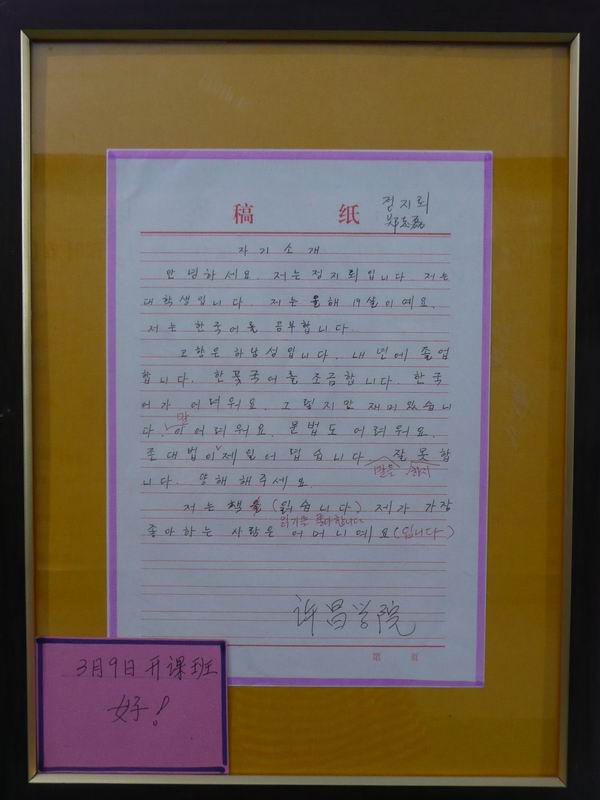 稿 纸
정지뢰
자기소개
안녕하세요. 저는 정지뢰입니다. 저는
대학생입니다. 저는 올해 19살이예요.
저는 한국어를 공부합니다.
고향은 하남성입니다. 내년에 졸업
합니다. 한국어를 조금합니다. 한국
어가 어려워요. 그렇지만 재미있습니
말
다. 이 어려워요. 문법도 어려워요.
존대법이 제일 어렵습니다. 잘 못합
말은 하지
니다. 양해해주세요.
저는 책을 (읽습니다) 제가 가장
좋아하는 사람은 어머니예요 (입니다)
许昌学院
第 页
3月9日开课班
好!